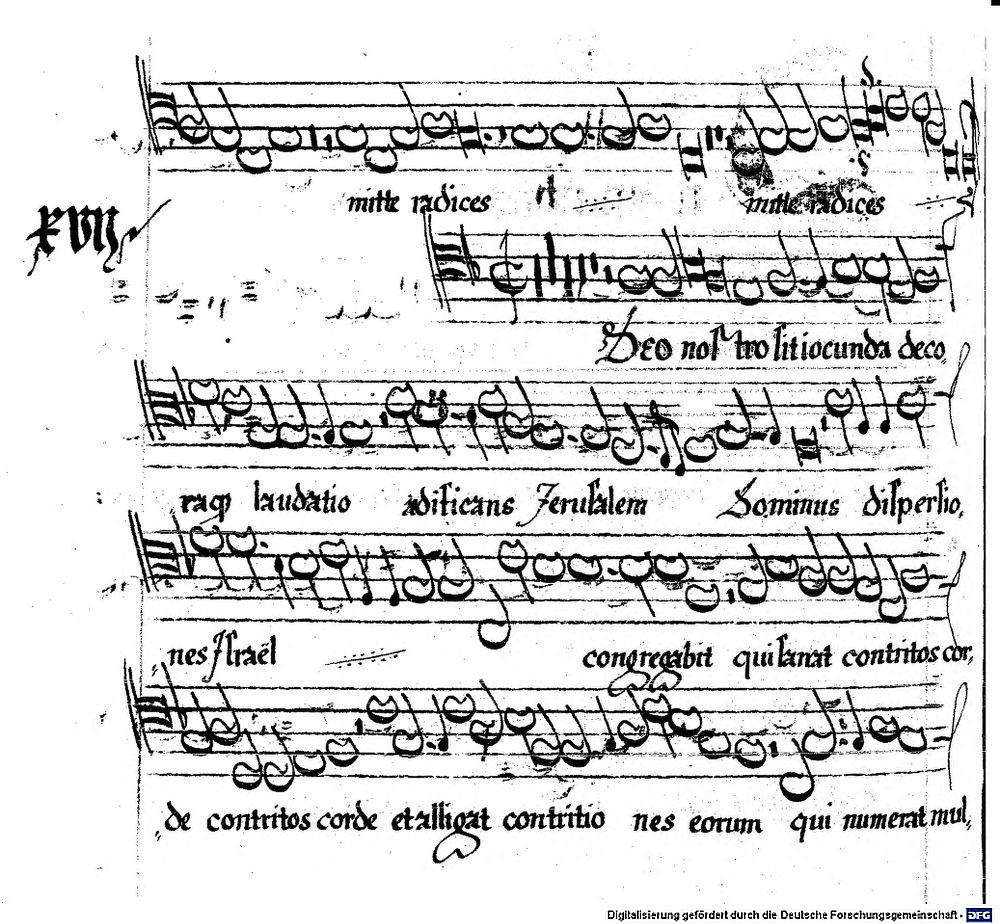 mitte radices mitte radices
XVIJ
Deo nostro sit iocunda deco,
raq laudatio ædificans Jerusalem Dominus dispersio,
nes Jsraël congregabit qui sanat contritos cor,
de contritos corde et alligat contritio nes eorum qui numerat mul,
Digitalisierung gefördert durch die Deutsche Forschungsgemeinschaft - DFG